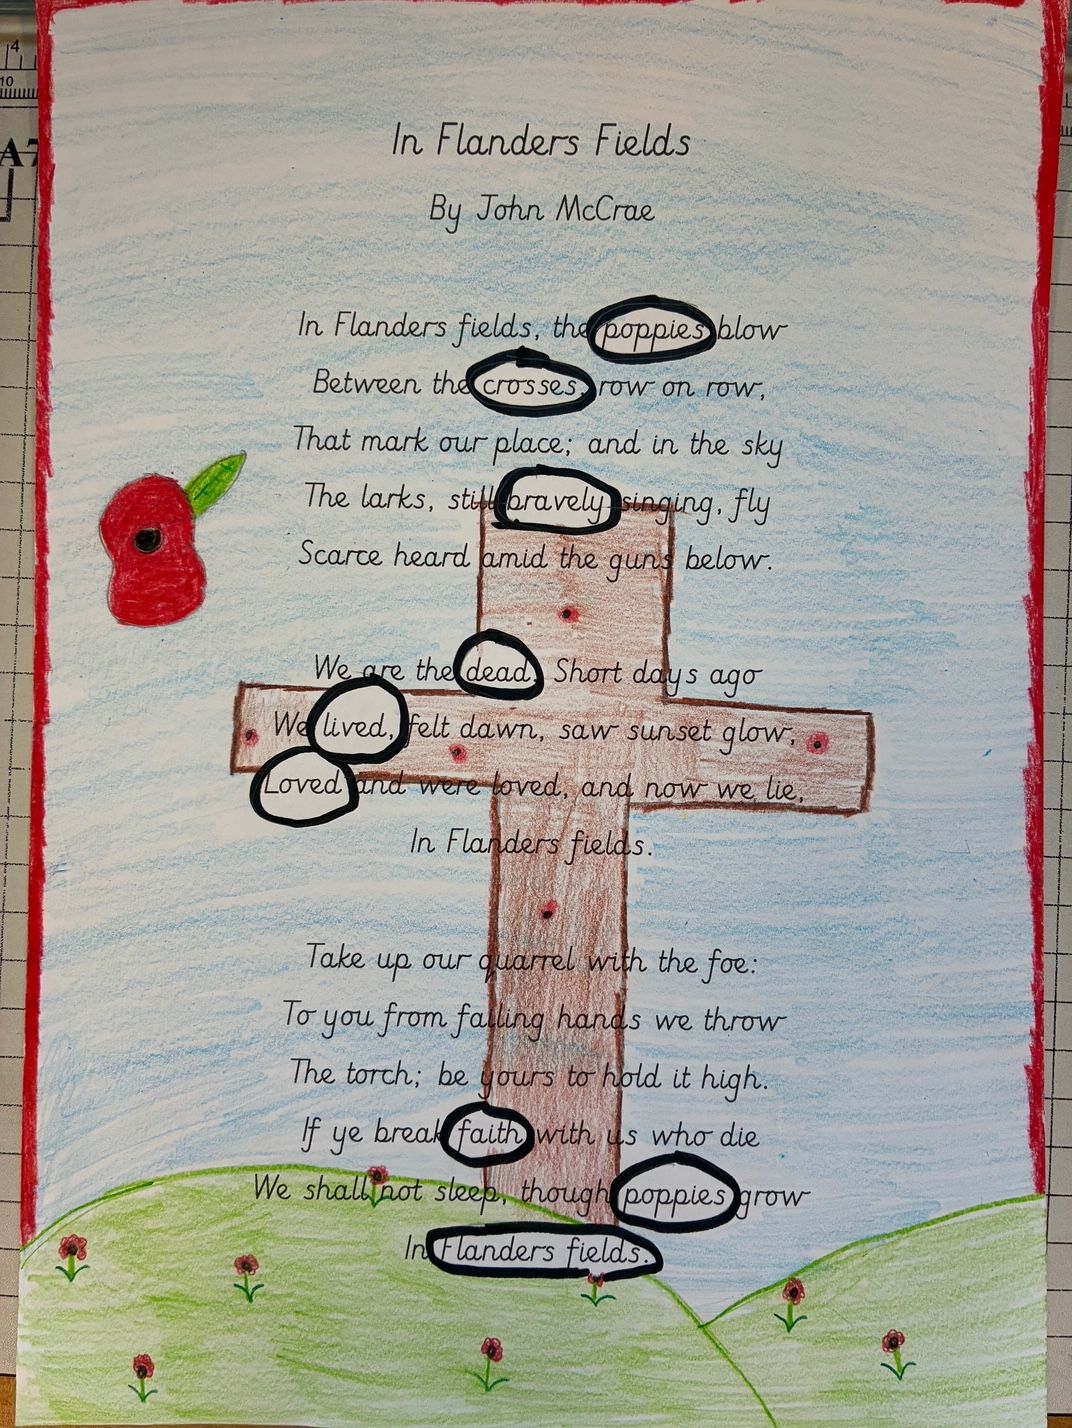 4
10
A7
In Flanders Fields
By John McCrae
In Flanders fields, the poppies blow
Between the crosses, row on row,
That mark our place; and in the sky
The larks, still bravely singing, fly
Scarce heard amid the guns below.
We are the dead. Short days ago
We lived, felt dawn, saw sunset glow,
Loved and were loved, and now we lie,
In Flanders fields.
Take up our quarrel with the foe:
To you from falling hands we throw
The torch; be yours to hold it high.
If ye break faith with us who die
We shall not sleep, though poppies grow
In Flanders fields.